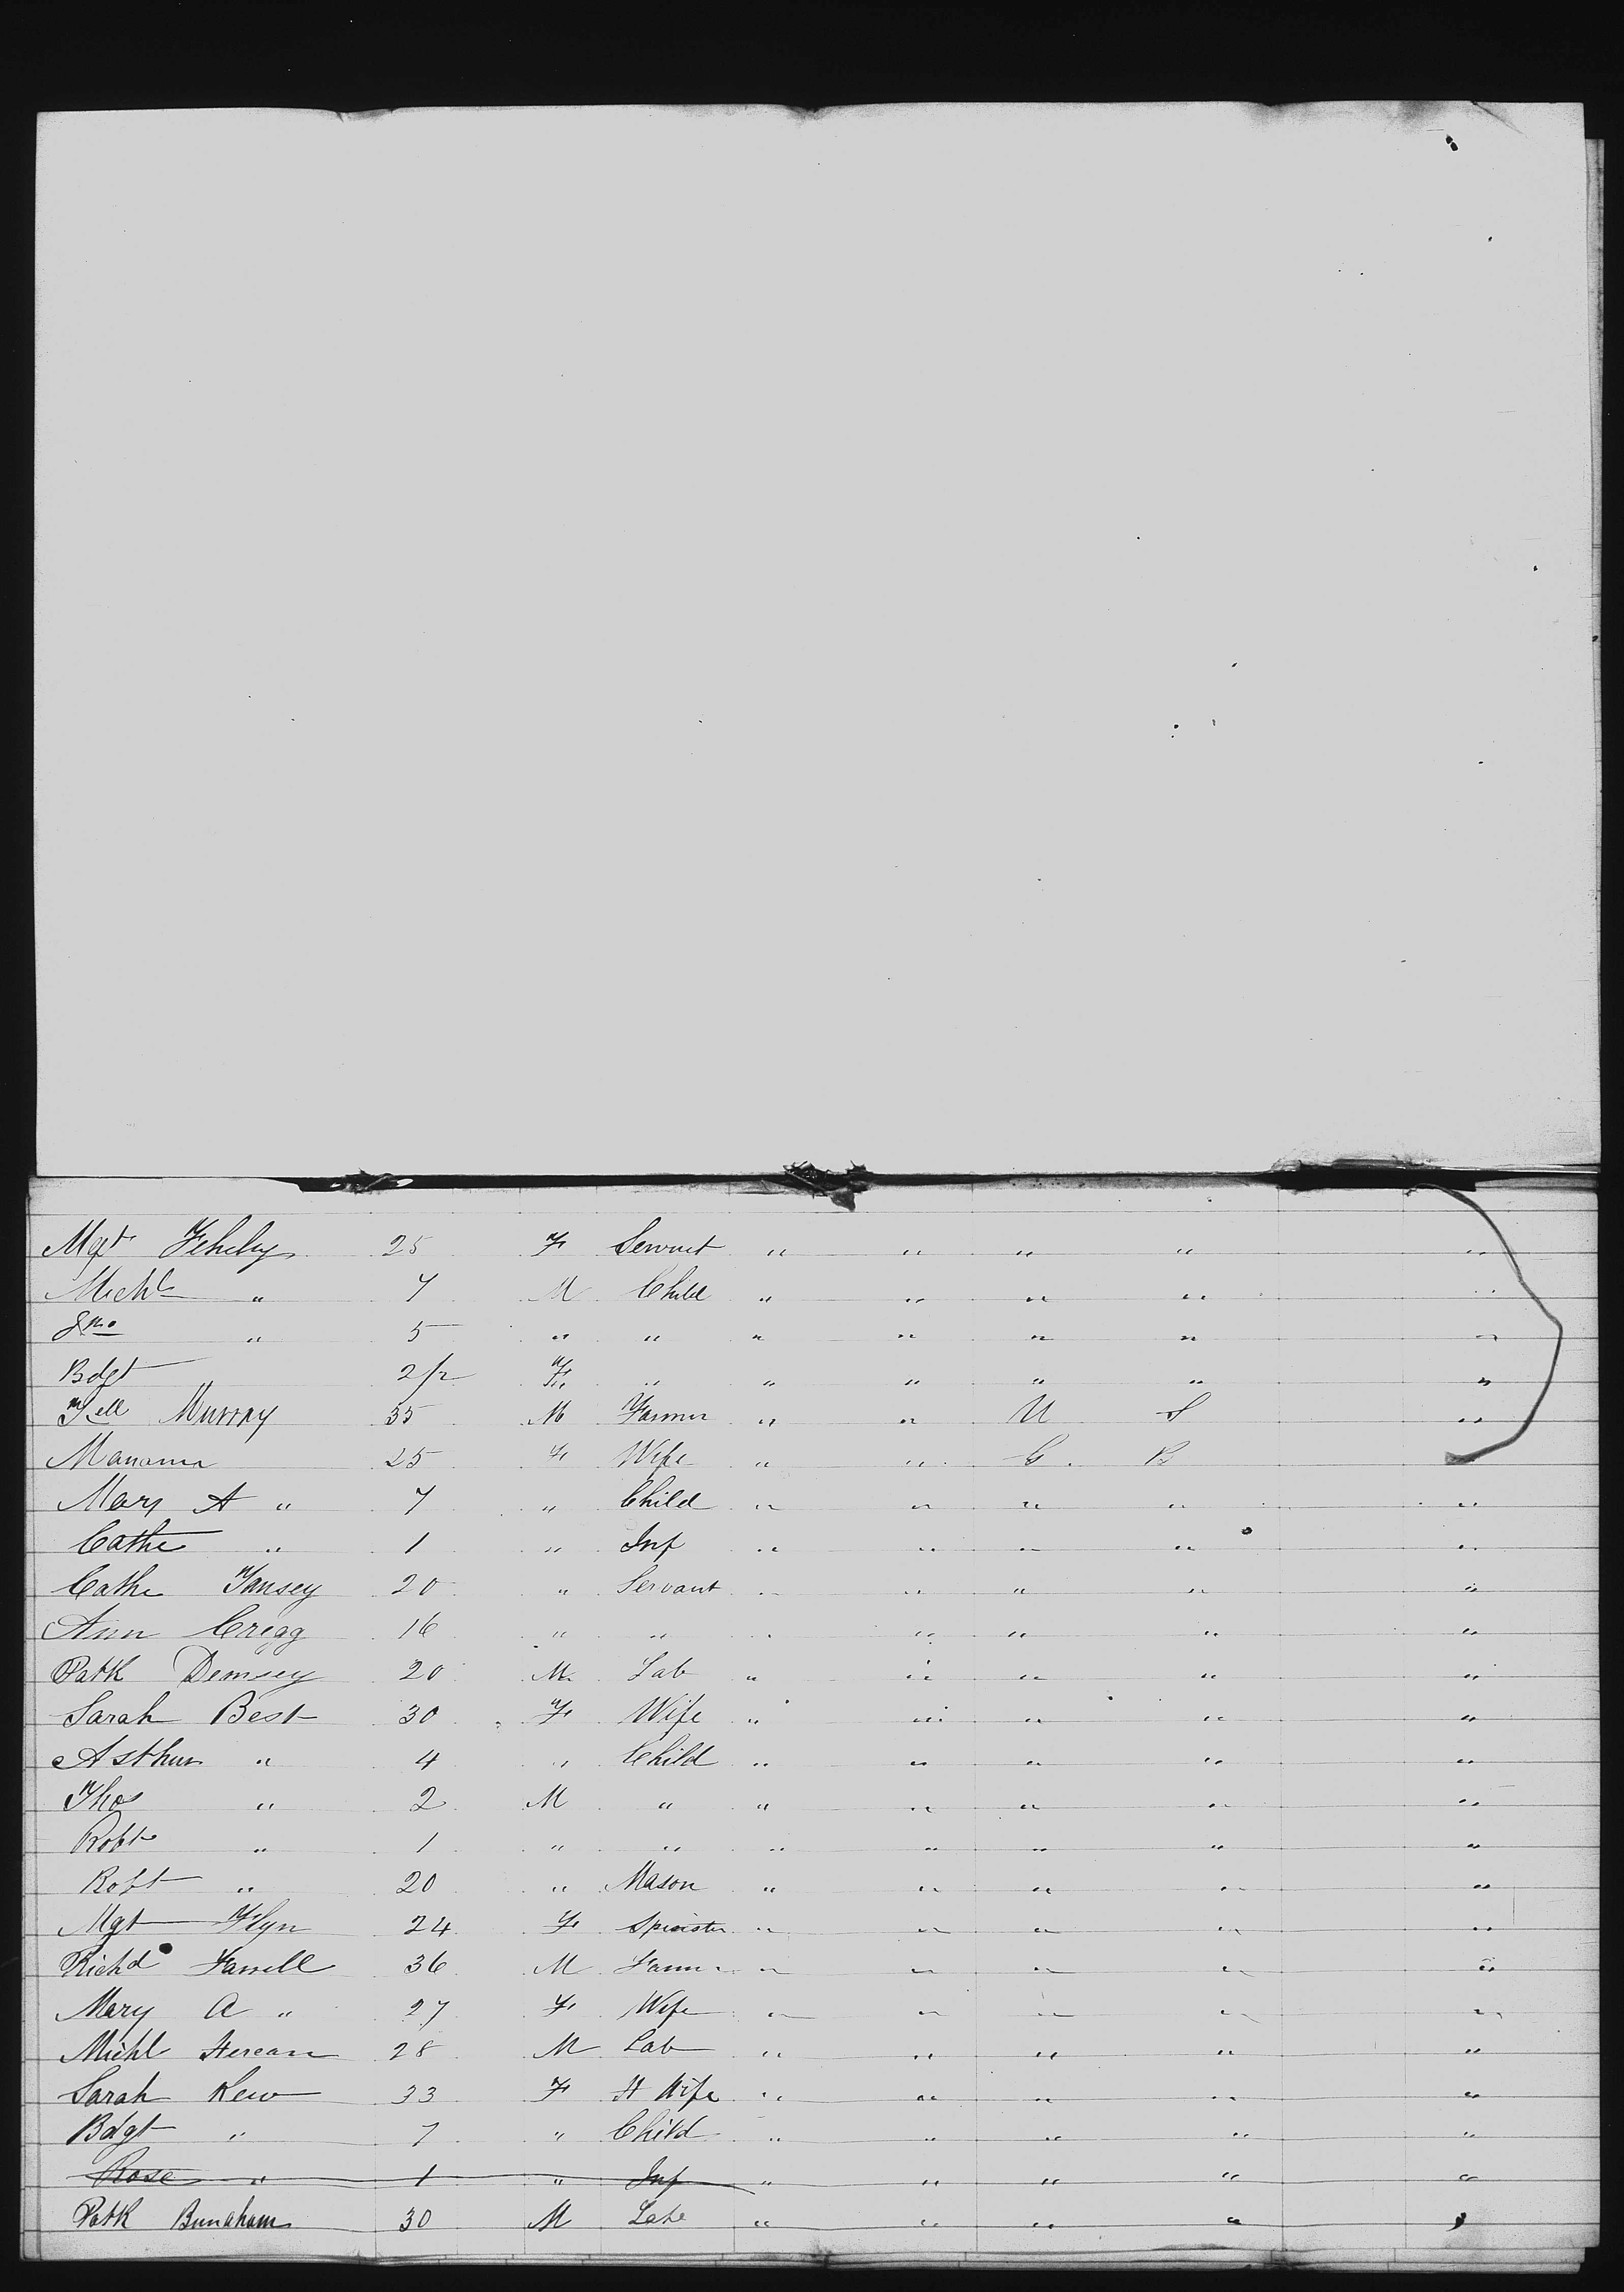 Mgt Fehily 25 F Servnt " " " " "
Michl " 7 M Child " " " " "
Jno " 5 " " " " " " "
Bdgt " 2/12 F " " " " " "
Murray 35 M Farmer " " U S "
25 F Wife " " G. B
Mary A " 7 " Child " " " " "
Cathe " 1 " Inf " " " " "
Cathe Tansey 20 " Servant " " " " "
Ann Cregg 16 " " " " " " "
Patk Demsey 20 M Lab " " " " "
Sarah Best 30 F Wife " " " " "
Asthur " 4 " Child " " " " "
Thos " 2 M " " " " " "
Robt " 1 " " " " " " "
Robt " 20 " Mason " " " " "
Mgt Flyn 24 F Spinster " " " " "
Richd Farrell 36 M Farmer " " " " "
Mary A " 27 F Wife " " " " "
Michl 28 M Lab " " " " "
Sarah Kew 33 F H Wife " " " " "
Bdgt " 7 " Child " " " " "
Rose " 1 " Inf " " " " "
Patk 30 M Labr " " " " "